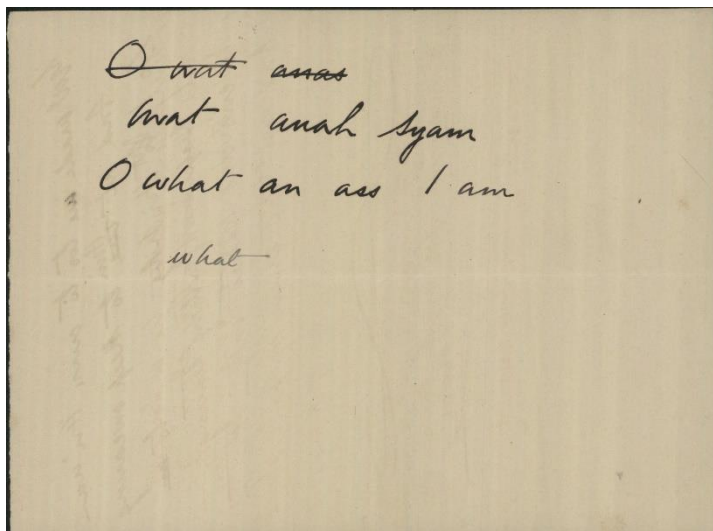 O wat anas
Owat anah Syam
O what an ass I am
what